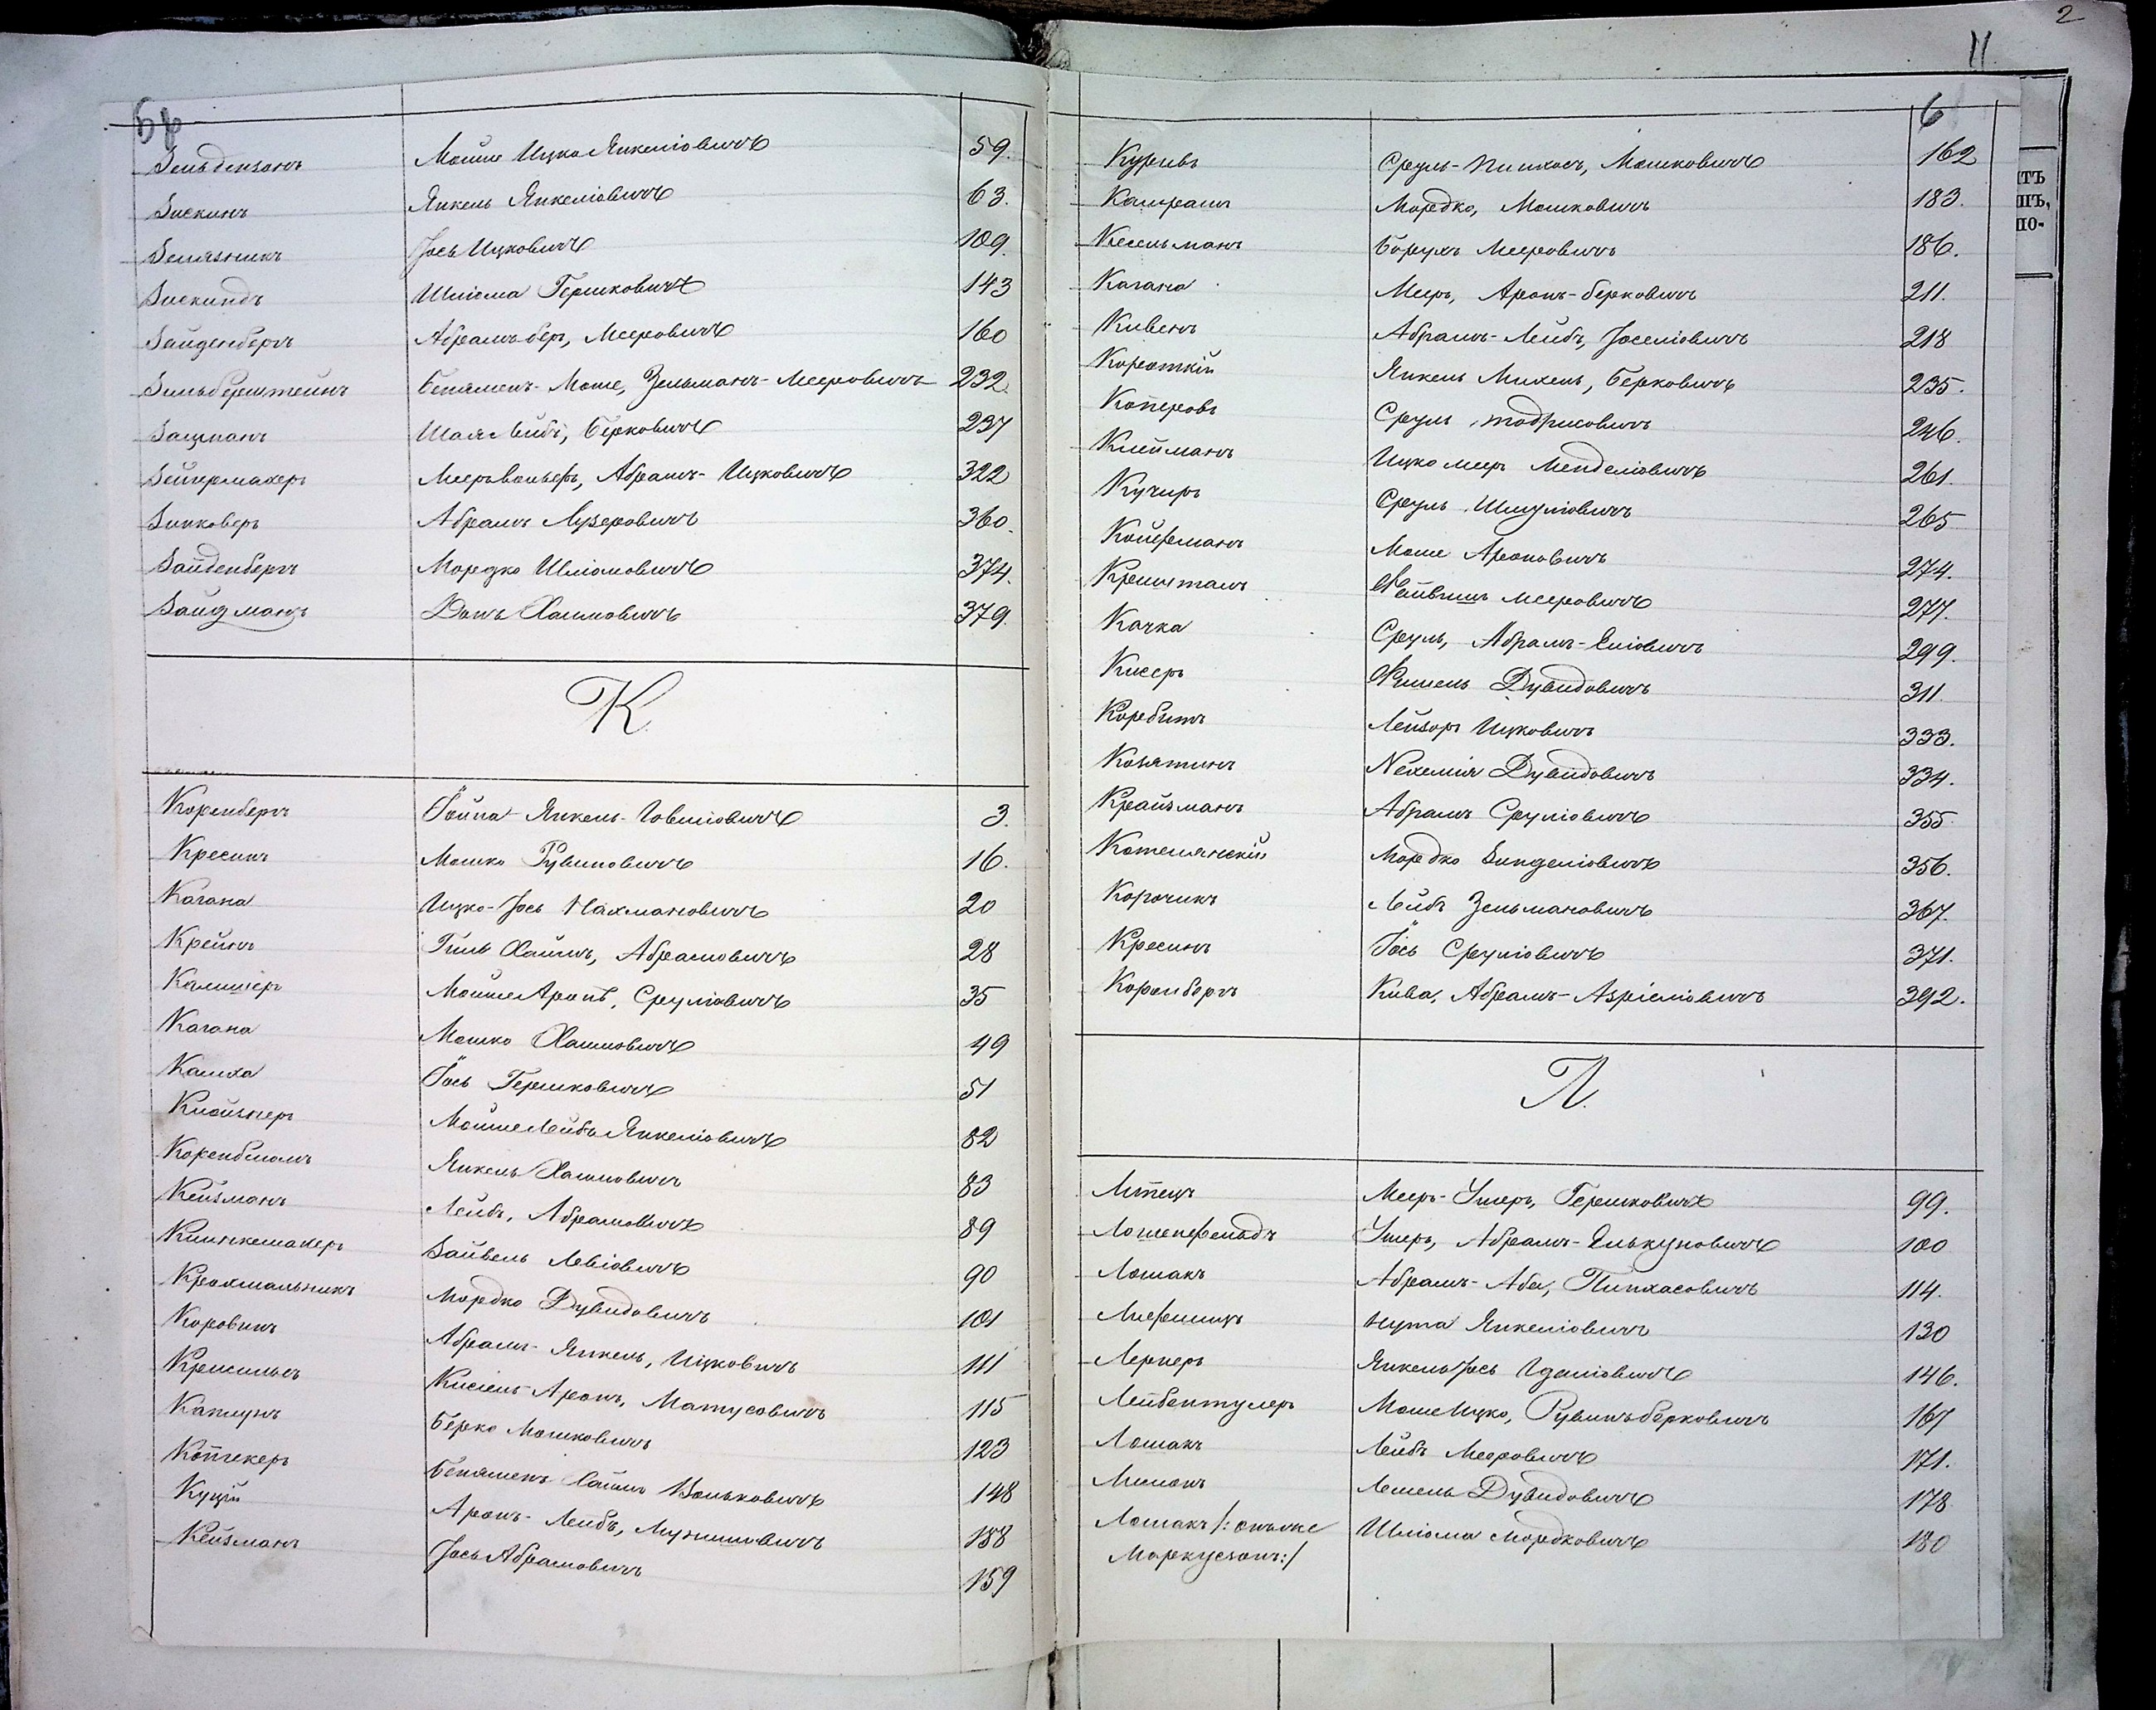 2
11.
6
Зельдензонъ Мойше Ицко Янкеліовичъ 59.
Зискинъ Янкель Янкеліовичъ 63.
Іось Ицковичъ 109.
Зискиндъ Шліома Гершковичъ 143
Зайденбергъ Абрамъ-беръ, Мееровичъ 160
Зильберштейнъ Бенямень-Моше, Зельманъ-Мееровичъ 232
Зацманъ Шая Лейбъ, Берковичъ 237
Зейгермахеръ Мееръ Вольфъ, Абрамъ-Ицковичъ 322
Зинковеръ Абрамъ Лузеровичъ 360.
Зайденбергъ Мордко Шліомовичъ 374.
Зайдманъ Данъ Хаимовичъ 379.
К.
Коренбергъ Іойна-Янкель-Іовеліовичъ 3.
Кресинъ Мошко Рувиновичъ 16.
Кагана Ицко-Іось Нахмановичъ 20
Крейнъ Гиль Хаимъ, Абрамовичъ 28
Калишеръ Мойше Аронъ, Сруліовичъ 35
Кагана Мошко Хаимовичъ 49
Камха Іось Гершковичъ 51
Клойзнеръ Мойше Лейбъ Янкеліовичъ 82
Коренблюмъ Янкель Хаимовичъ 83
Кейзманъ Лейбъ, Абрамовичъ 89
Клингемахеръ Зайвель Левіовичъ 90
Крохмальникъ Мордко Дувидовичъ 101
Коровинъ Абрамъ-Янкель, Ицковичъ 111
Кисіель-Аронъ, Матусовичъ 115
Каплунъ Берко Мошковичъ 123
Коптекеръ Бенямень Хаимъ Вольковичъ 148
Куцій Аронъ-Лейбъ, Мунишовичъ 158
Кейзманъ Іось Абрамовичъ 159
Куривъ Сруль-Пинхосъ, Мошковичъ 162
Мордко, Мошковичъ 183.
Кесельманъ Борухъ Мееровичъ 186.
Кагана Мееръ, Аронъ-Берковичъ 211.
Кивенъ Абрамъ-Лейбъ, Іоселіовичъ 218
Короткій Янкель Михель, Берковичъ 235.
Коперовъ Сруль, Тодрисовичъ 246.
Клейманъ Ицко Мееръ Менделіовичъ 261.
Кучиръ Сруль, Шмуліовичъ 265
Койфманъ Моше Ароновичъ 274.
Кренштамъ Файвишъ Мееровичъ 277.
Качка Сруль, Абрамъ-Еліовичъ 299.
Кисеръ Фишель Дувидовичъ 311.
Коребитъ Лейзоръ Ицковичъ 333.
Козятинъ Нехемія Дувидовичъ 334.
Крайзманъ Абрамъ Сруліовичъ 355
Котелянскій Мордко Зинделіовичъ 356.
Корочикъ Лейбъ Зельмановичъ 367.
Кресинъ Іось Сруліовичъ 371.
Коренбергъ Кива, Абрамъ-Азріеліовичъ 392.
Л.
Мееръ-Ушеръ, Гершковичъ 99.
Лошенфельдъ Ушеръ, Абрамъ-Элькуновичъ 100
Лошакъ Абрамъ-Аба, Пинхасовичъ 114.
Лифшицъ Нута Янкеліовичъ 130
Лернеръ Янкель Іось Идаліовичъ 146.
Лейбентулеръ Моше Ицко, Рувинъ Берковичъ 167
Лошакъ Лейбъ Мееровичъ 171.
Лиманъ Лемель Дувидовичъ 178
Лошакъ /: онъ же Шліома Мордковичъ 180
Маркузонъ :/